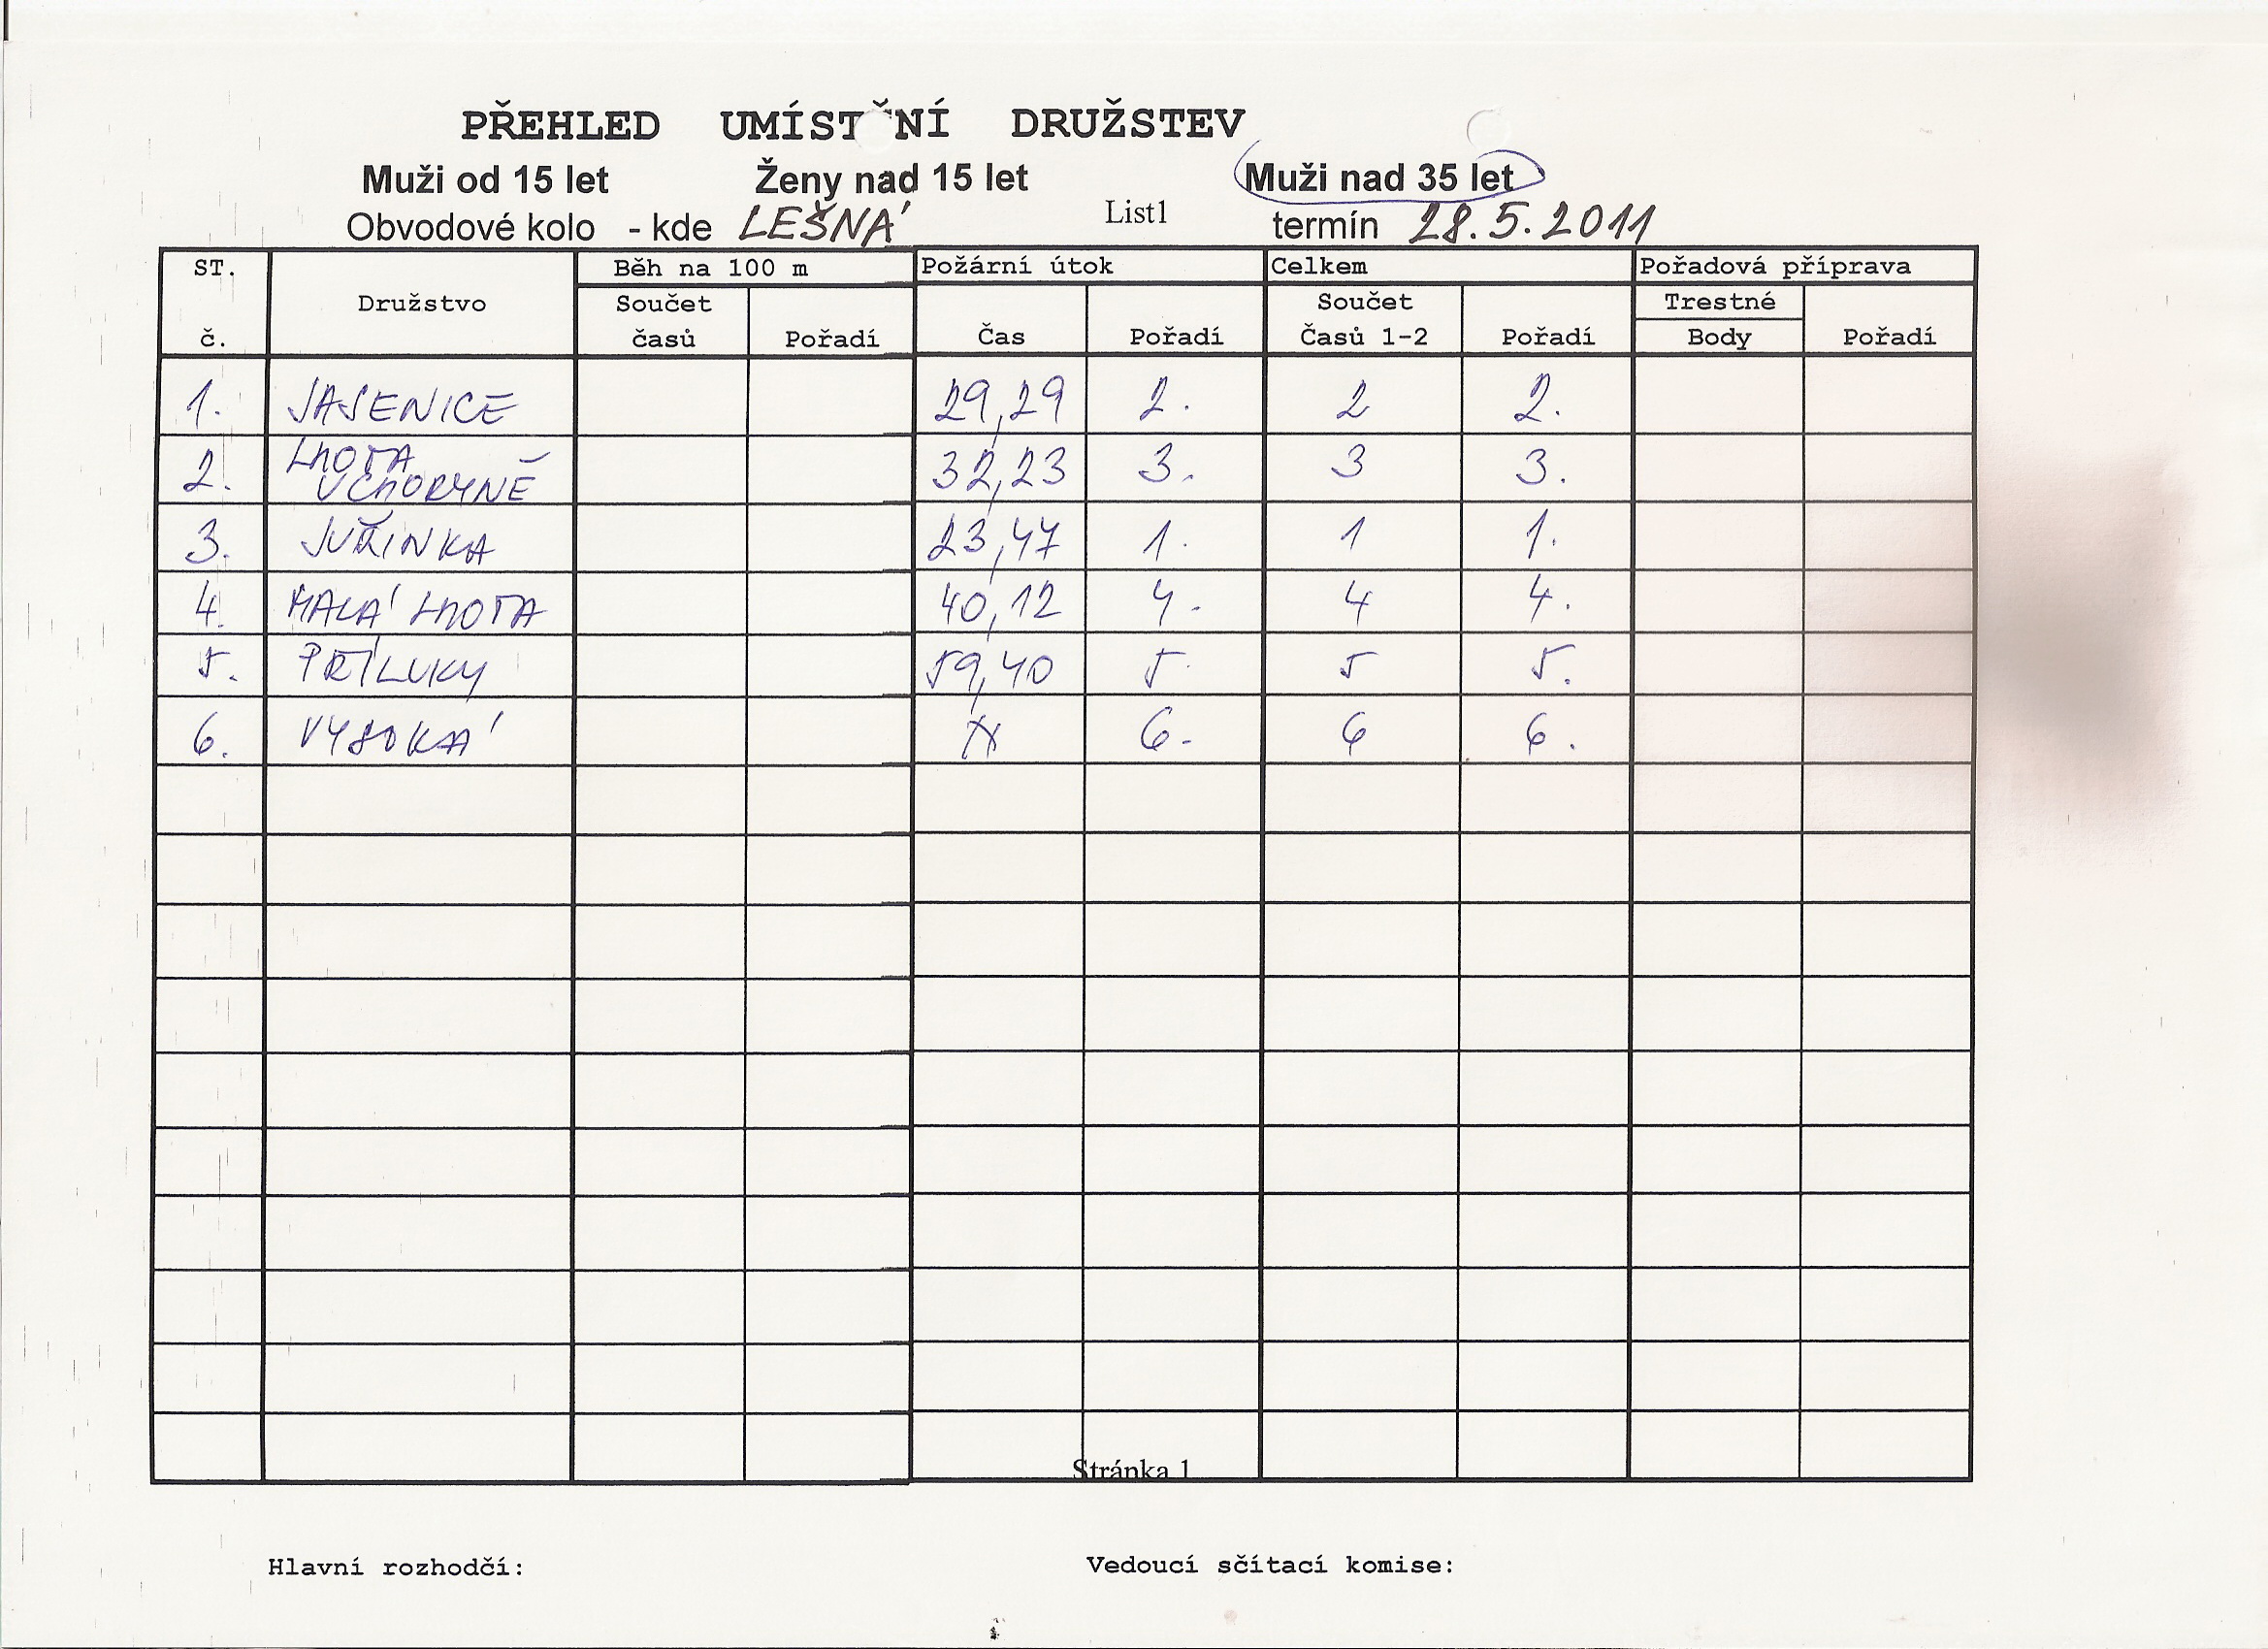 PŘEHLED UMÍSTĚNÍ DRUŽSTEV
Muži od 15 let Ženy nad 15 let Muži nad 35 let
Obvodové kolo - kde LEŠNÁ List1 termín 28.5.2011
ST. Běh na 100 m Požární útok Celkem Pořadová příprava
Družstvo Součet Součet Trestné
č. časů Pořadí Čas Pořadí Časů 1-2 Pořadí Body Pořadí
1. JASENICE 29,29 2. 2 2.
2. LHOTA U CHORYNĚ 32,23 3. 3 3.
3. JUŘINKA 23,47 1. 1 1.
4. MALÁ LHOTA 40,12 4. 4 4.
5. PŘÍLUKY 59,40 5. 5 5.
6. VYSOKÁ X 6. 6 6.
Stránka 1
Hlavní rozhodčí: Vedoucí sčítací komise: